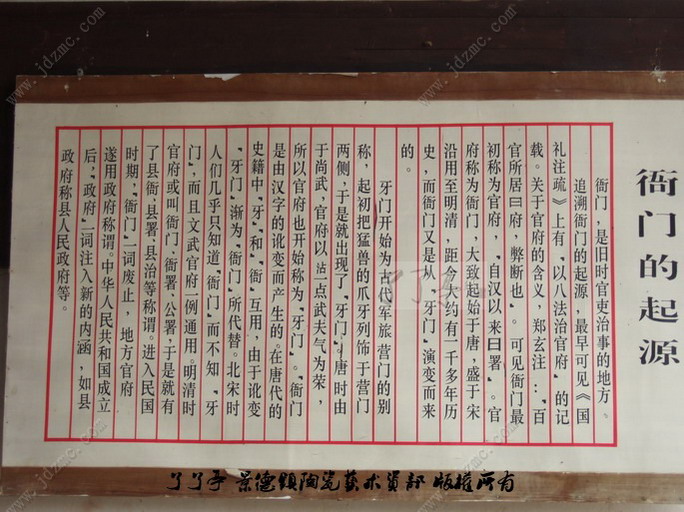 衙门的起源
衙门，是旧时官吏治事的地方。
追溯衙门的起源，最早可见《国
礼注疏》上有“以八法治官府”的记
载。关于官府的含义，郑玄注：“百
官所居曰府，弊断也”。可见衙门最
初称为官府，“自汉以来曰署”。官
府称为衙门，大致起始于唐，盛于宋
沿用至明清，距今大约有一千多年历
史，而衙门又是从“牙门”演变而来
的。
牙门开始为古代军旅营门的别
称，起初把猛兽的爪牙列饰于营门
两侧，于是就出现了“牙门”。唐时由
于尚武，官府以沾一点武夫气为荣，
所以官府也开始称为“牙门”。“衙门”
是由汉字的讹变而产生的。在唐代的
史籍中“牙”和“衙”互用，由于讹变
“牙门”渐为“衙门”所代替。北宋时
人们几乎只知道“衙门”而不知“牙
门”，而且文武官府一例通用。明清时
官府或叫衙门、衙署、公署，于是就有
了县衙、县署、县治等称谓。进入民国
时期，“衙门”一词废止，地方官府
遂用政府称谓。中华人民共和国成立
后，“政府”一词注入新的内涵，如县
政府称县人民政府等。
了了亭 景德镇陶瓷艺术资部 版权所有
www.jdzmc.com